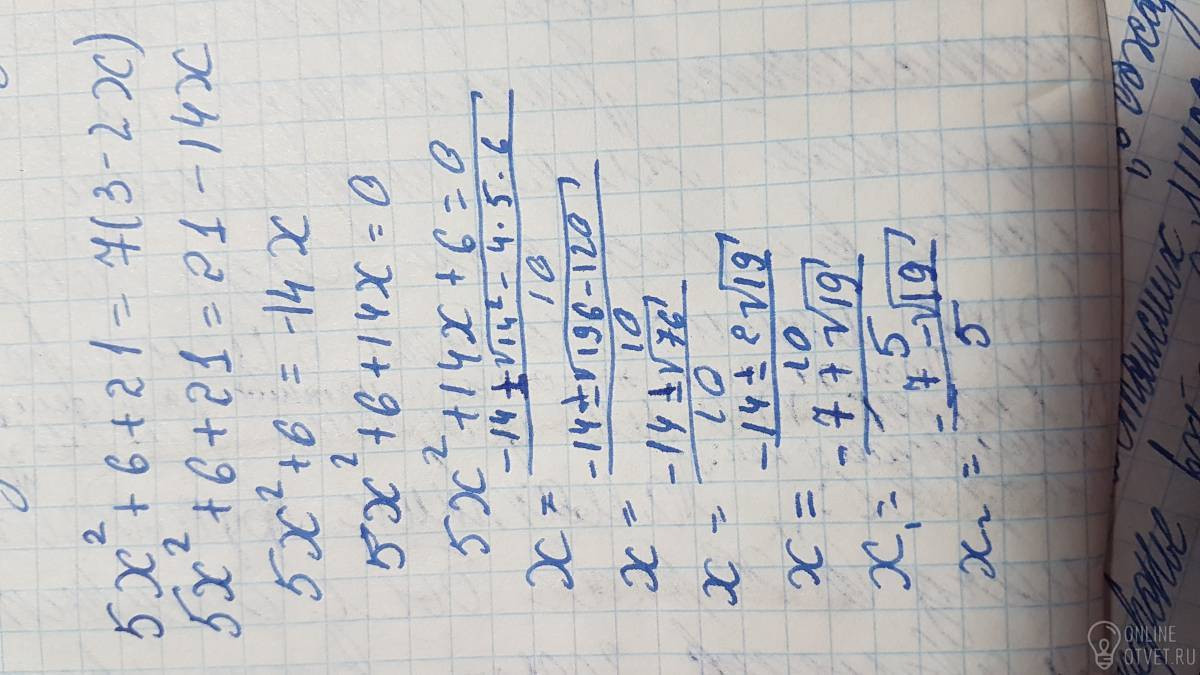 5x² + 6 + 21 = 7(3 - 2x)
5x² + 6 + 21 = 21 - 14x
5x² + 6 = -14x
5x² + 6 + 14x = 0
5x² + 14x + 6 = 0
x = (-14 ± √(14² - 4 · 5 · 6)) / 10
x = (-14 ± √(196 - 120)) / 10
x = (-14 ± √76) / 10
x = (-14 ± 2√19) / 10
x₁ = (-7 + √19) / 5
x₂ = (-7 - √19) / 5
ONLINE
OTVET.RU